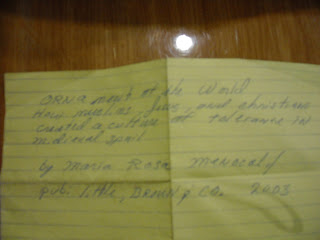 ORNament of the World
How muslims, Jews, and christians
created a culture of tolerance in
medieval Spain
by Maria Rosa Menacal /
Publ. little, BROWN & CO. 2003